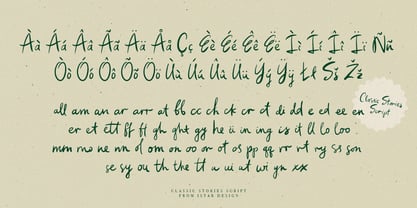 Àà Áá Ââ Ãã Ää Åå Çç Èè Éé Êê Ëë Ìì Íí Îî Ïï Ññ
Òò Óó Ôô Õõ Öö Ùù Úú Ûû Üü Ýý Ÿÿ Łł Šš Žž
Classic Stories
Script
all am an ar arr at bb cc ch ck cr ct di dd e ed ee en
er et ett ff fl gh ght gg he ii in ing is it ll lo loo
mm mo ne nn d om on oo or ot os pp qq rr rt ry ss son
se sy ou th the tt u ui ut wi yn xx
CLASSIC STORIES SCRIPT
FROM ISTAR DESIGN